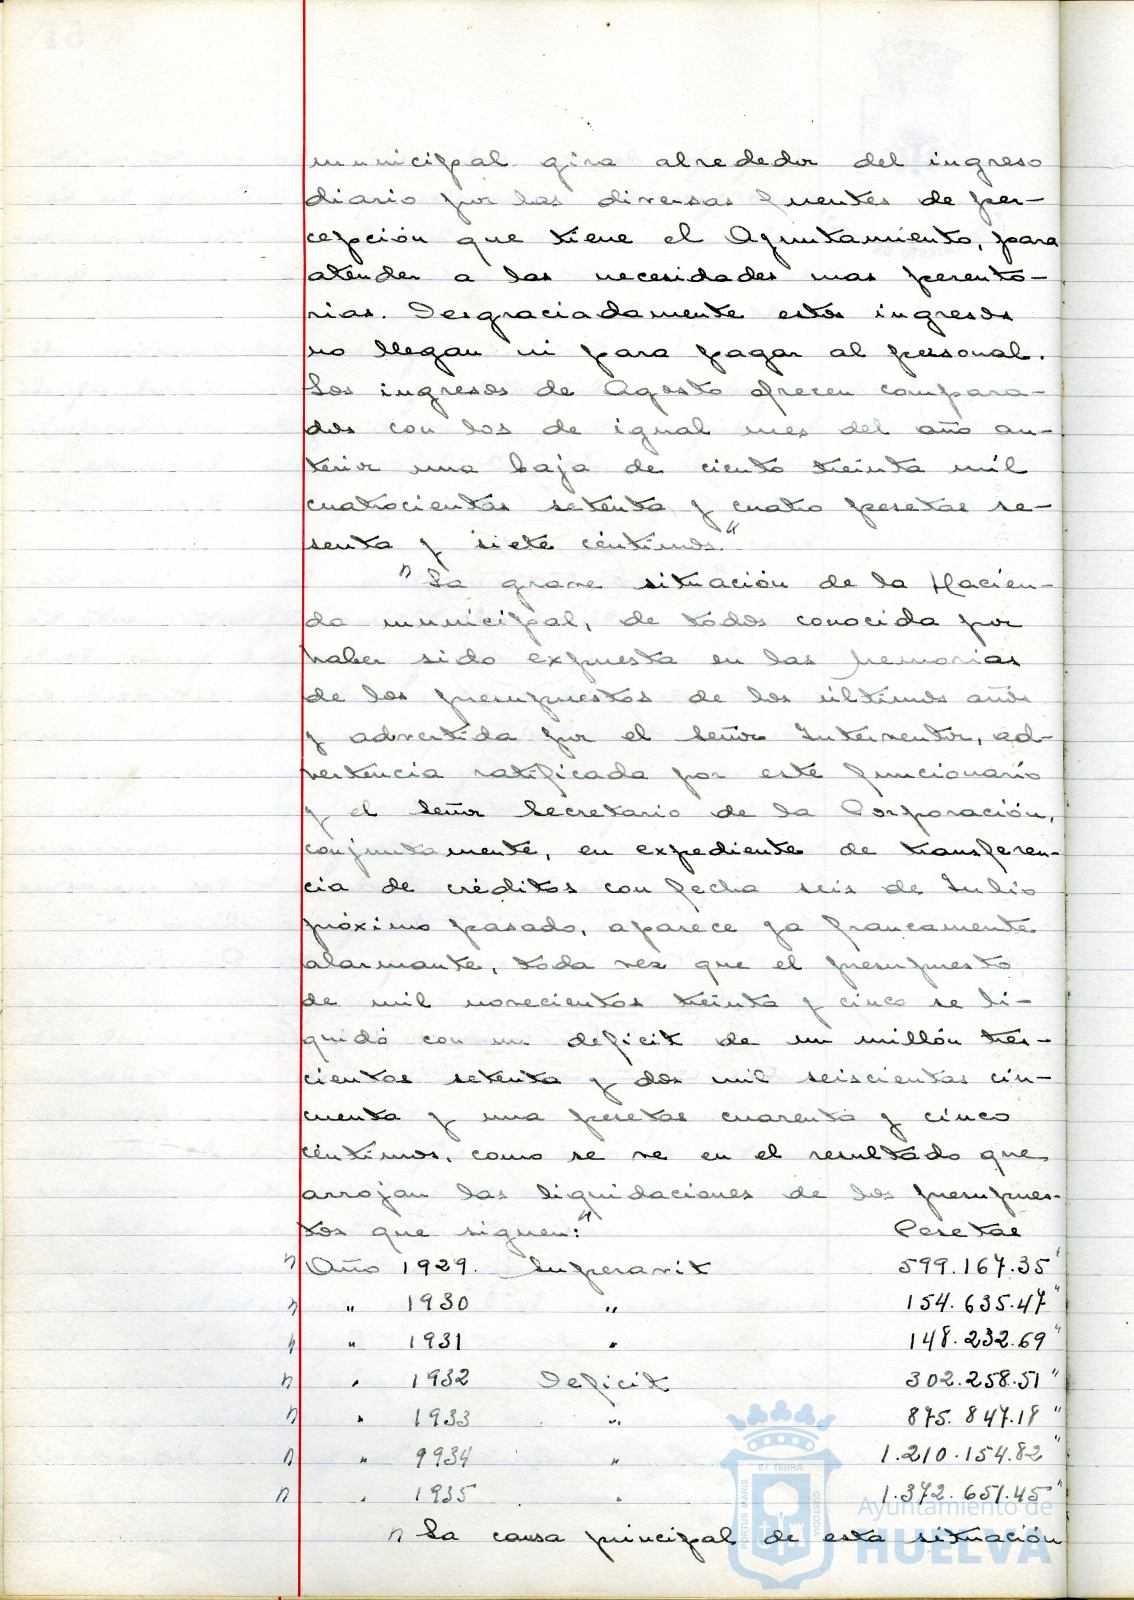 municipal gira alrededor del ingreso
diario por las diversas fuentes de per-
cepción que tiene el Ayuntamiento, para
atender a las necesidades mas perento-
rias. Desgraciadamente estos ingresos
no llegan ni para pagar al personal.
Los ingresos de Agosto ofrecen compara-
dos con los de igual mes del año an-
terior una baja de ciento treinta mil
cuatrocientas setenta y cuatro pesetas se-
senta y siete céntimos"
"La grave situación de la Hacien-
da municipal, de todos conocida por
haber sido expuesta en las memorias
de los presupuestos de los últimos años
y advertida por el señor Interventor, ad-
vertencia ratificada por este funcionario
y el señor Secretario de la Corporación,
conjuntamente, en expediente de transferen-
cia de créditos con fecha seis de Julio
próximo pasado, aparece ya francamente
alarmante, toda vez que el presupuesto
de mil novecientos treinta y cinco se li-
quidó con un deficit de un millón tres-
cientas setenta y dos mil seiscientas cin-
cuenta y una pesetas cuarenta y cinco
céntimos, como se ve en el resultado que
arrojan las liquidaciones de los presupues-
tos que siguen:" Pesetas
" Año 1929. Superavit 599.167.35"
" " 1930 " 154.635.47"
" " 1931 " 148.232.69"
" " 1932 Deficit 302.258.51"
" " 1933 " 875.847.18"
" " 9934 " 1.210.154.82"
" " 1935 " 1.372.651.45"
" La causa principal de esta situación
PORTUS MARIS ET TERRÆ CUSTODIA
Ayuntamiento de
HUELVA